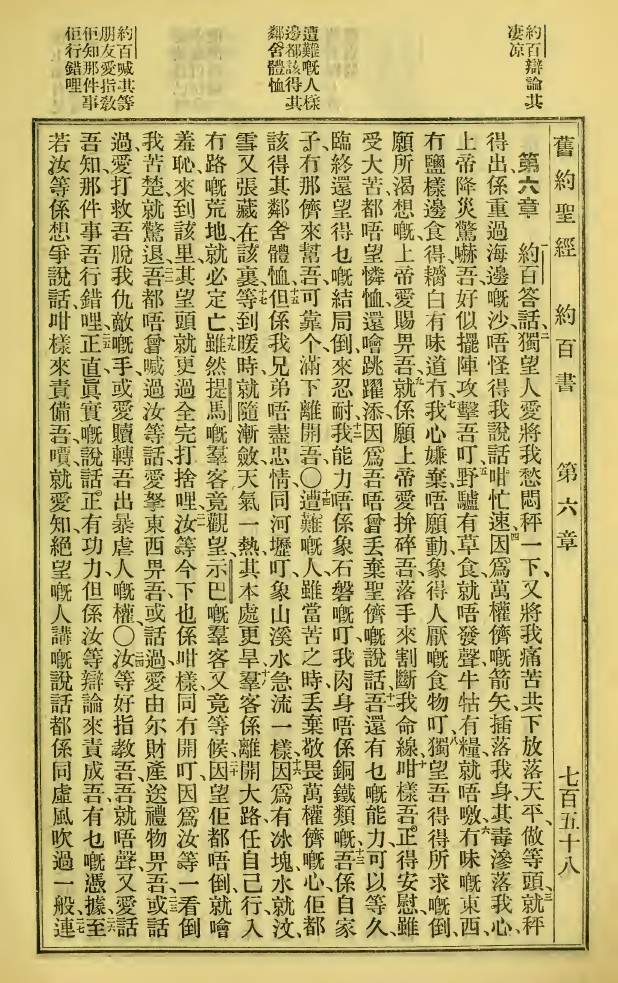 約百辯論其
凄凉
遭難嘅人樣
邊都該得其
鄰舍體恤
約百喊其等
朋友愛指教
佢知那件事
佢行錯哩
舊約聖經 約百書 第六章 七百五十八
第六章 一約百答話、二獨望人愛將我愁悶秤一下、又將我痛苦共下放落天平、做等頭就秤
得出係重過海邊嘅沙、唔怪得我說話咁忙速、四因爲萬權儕嘅箭矢、插落我身、其毒滲落我心、
上帝降災驚嚇吾好似擺陣攻擊吾叮、五野驢有草食就唔發聲、牛牯有糧就唔噭、六冇味嘅東西、
冇鹽樣邊食得、鷯白有味道冇、七我心嫌棄唔願動、象得人厭嘅食物叮、八獨望吾得得所求嘅、倒
願所渴想嘅、上帝愛賜畀吾、九就係願上帝愛拚碎吾、落手來割斷我命線、十咁樣吾正得安慰、雖
受大苦都唔望憐恤、還噲跳躍添、因爲吾唔曾丢棄聖儕嘅說話、十一吾還有乜嘅能力、可以等久、
臨終還望得乜嘅結局、倒來忍耐、十二我能力唔係象石磐嘅叮、我肉身唔係銅鐵類嘅、十三吾係自家
子、冇那儕來幫吾、可靠个滿下離開吾〇十四遭難嘅人、雖當苦之時丢棄敬畏萬權儕嘅心、佢都
該得其鄰舍體恤、十五但係我兄弟唔盡忠情、同河壢叮、象山溪水急流一樣、十六因爲有冰塊水就汶、
雪又張藏在該裏、十七等到暖時就隨漸斂、天氣一熱、其本處更旱、十八羣客係離開大路、任自己行入
冇路嘅荒地、就必定亡、十九雖然提馬嘅羣客竟觀望、示巴嘅羣客又竟等候、二十因望佢都唔倒、就噲
羞恥、來到該里、其望頭就更過全完打捨哩、二一汝等今下也係咁樣同冇開叮、因爲汝等一看倒
我苦楚就驚退、二二吾都唔曾喊過汝等話、愛拏東西畀吾、或話過、愛由尔財產送禮物畀吾、二三或話
過、愛打救吾脫我仇敵嘅手、或愛贖轉吾出暴虐人嘅權〇二四汝等好指教吾、吾就唔聲、又愛話
吾知那件事吾行錯哩、二五正直眞實嘅說話、正有功力、但係汝等辯論來責成吾、有乜嘅憑據、二六至
若汝等係想爭說話、咁樣來責備吾嘳、就愛知絕望嘅人講嘅說話都係同虛風吹過一般、二七連